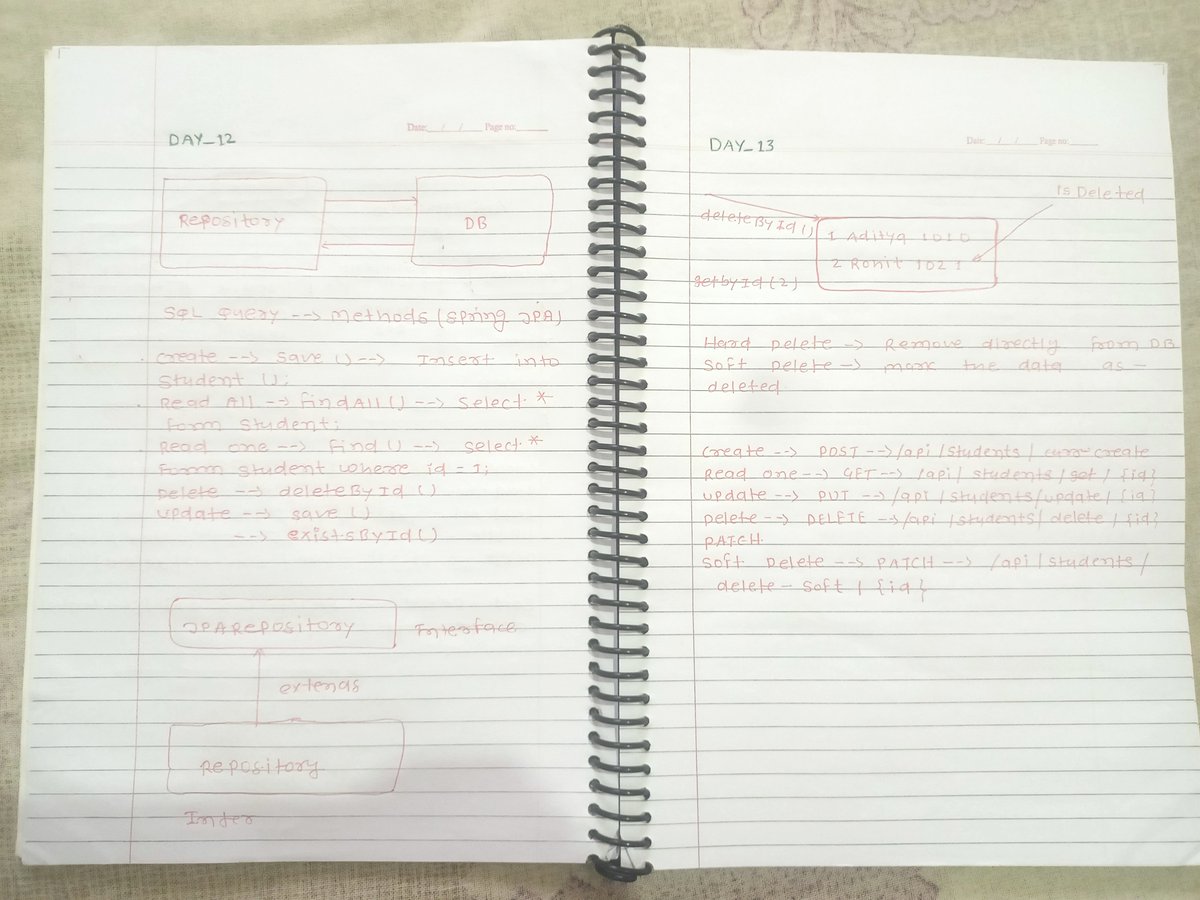 DAY_12
Date: / / Page no:
Repository
DB
SQL Query --> Methods (Spring JPA)
Create --> save () --> Insert into
Student ();
Read All --> findAll () --> Select *
form Student;
Read one --> find () --> select *
form student where id = 1;
Delete --> deleteById ()
update --> save ()
--> existsById ()
JPARepository
Interface
extends
Repository
Inter
DAY_13
Date: / / Page no:
Is Deleted
deleteById ()
1 Aditya 1010
2 Ronit 1021
getbyId (2)
Hard Delete -> Remove directly from DB
Soft Delete -> mark the data as -
deleted
Create --> POST --> /api/students/ create
Read one --> GET --> /api/students/get/{id}
update --> PUT --> /api/students/update/{id}
Delete --> DELETE --> /api/students/delete/{id}
PATCH
Soft Delete --> PATCH --> /api/students/
delete - soft / {id}